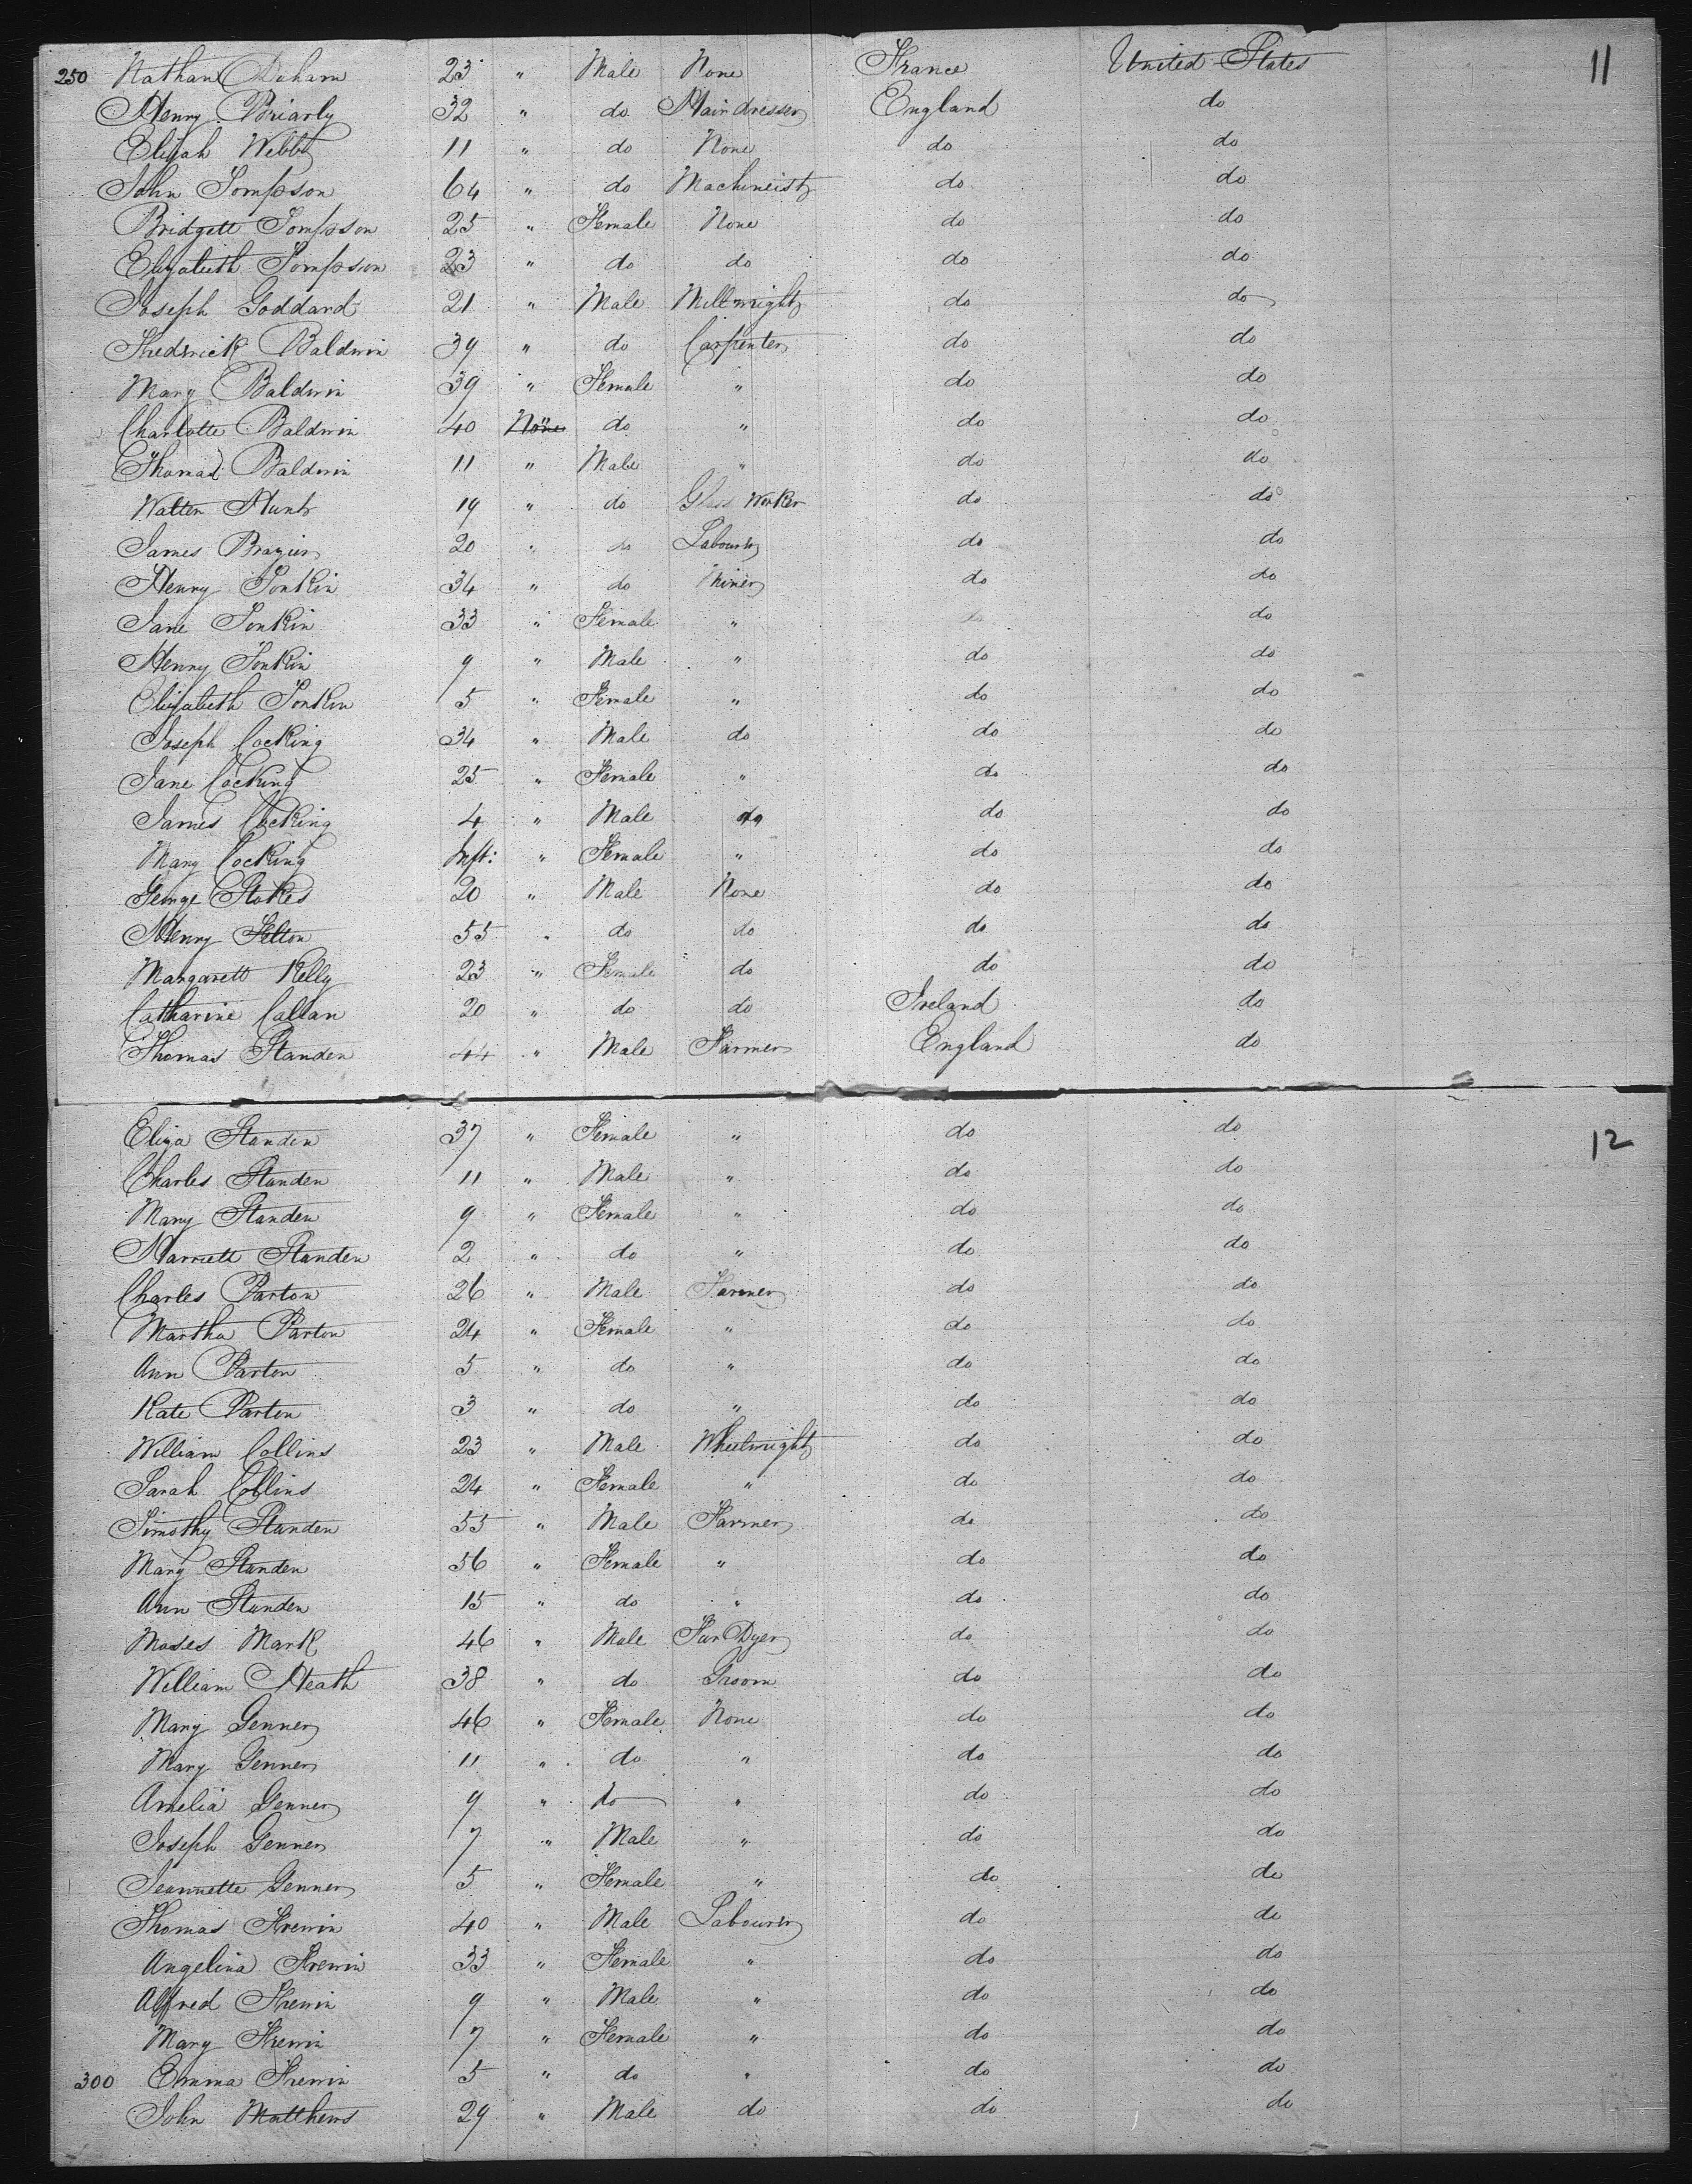 250 Nathan Doham 23 " Male None France United States 11
Henry Briarly 32 " do Hairdresser England do
Elijah Webb 11 " do None do do
John Tompson 64 " do Machineist do do
Bridgett Tompson 25 " Female None do do
Elizabeth Tompson 23 " do do do do
Joseph Goddard 21 " Male Millwright do do
Frederick Baldwin 39 " do Carpenter do do
Mary Baldwin 39 " Female " do do
Charlotte Baldwin 40 None " do " do do
Thomas Baldwin 11 " Male " do do
Walter Hunt 19 " do Glass Worker do do
James Brazier 20 " do Labourer do do
Henry Tonkin 34 " do Miner do do
Jane Tonkin 33 " Female " do do
Henry Tonkin 9 " Male " do do
Elizabeth Tonkin 5 " Female " do do
Joseph Cocking 34 " Male do do do
Jane Cocking 25 " Female " do do
James Cocking 4 " Male do do
Mary Cocking Inft: " Female " do do
George Stokes 20 " Male None do do
Henry Felton 55 " do do do do
Margarett Kelly 23 " Female do do do
Catharine Callan 20 " do do Ireland do
Thomas Standen 44 " Male Farmer England do
Eliza Standen 37 " Female " do do 12
Charles Standen 11 " Male " do do
Mary Standen 9 " Female " do do
Harriett Standen 2 " do " do do
Charles Parton 26 " Male Farmer do do
Martha Parton 24 " Female " do do
Ann Parton 5 " do " do do
Kate Parton 3 " do " do do
William Collins 23 " Male Wheelwright do do
Sarah Collins 24 " Female " do do
Timothy Standen 55 " Male Farmer do do
Mary Standen 56 " Female " do do
Ann Standen 15 " do " do do
Moses Mark 46 " Male Fur Dyer do do
William Heath 38 " do Groom do do
Mary Genner 46 " Female None do do
Mary Genner 11 " do " do do
Amelia Genner 9 " do " do do
Joseph Genner 7 " Male " do do
Jeannette Genner 5 " Female " do do
Thomas Frewin 40 " Male Labourer do do
Angelina Frewin 33 " Female " do do
Alfred Frewin 9 " Male " do do
Mary Frewin 7 " Female " do do
300 Emma Frewin 5 " do " do do
John Matthews 29 " Male do do do